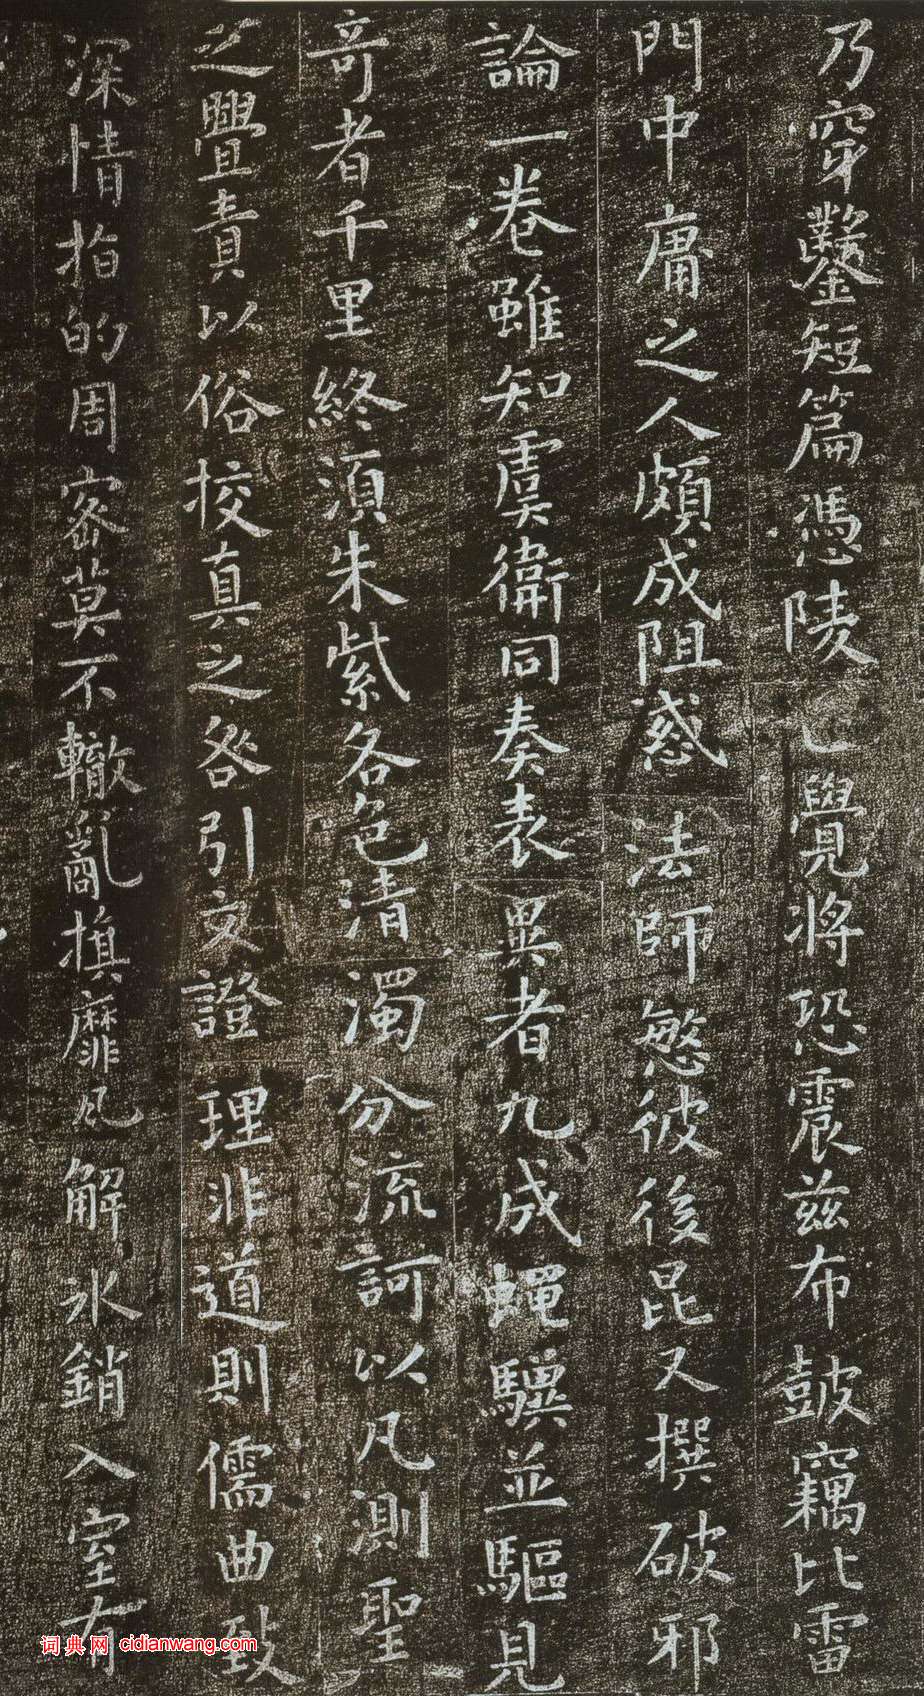 乃穿鑿短篇憑陵正覺將恐震茲布鼓竊比雷
門中庸之人頗成阻惑法師愍彼後昆又撰破邪
論一卷雖知虞衛同奏表異者九成蠅驥並驅見
奇者千里終須朱紫各色清濁分流訶以凡測聖
之舋責以俗校真之咎引文證理非道則儒曲致
深情指的周密莫不轍亂旗靡瓦解冰銷入室有
词典网 cidianwang.com